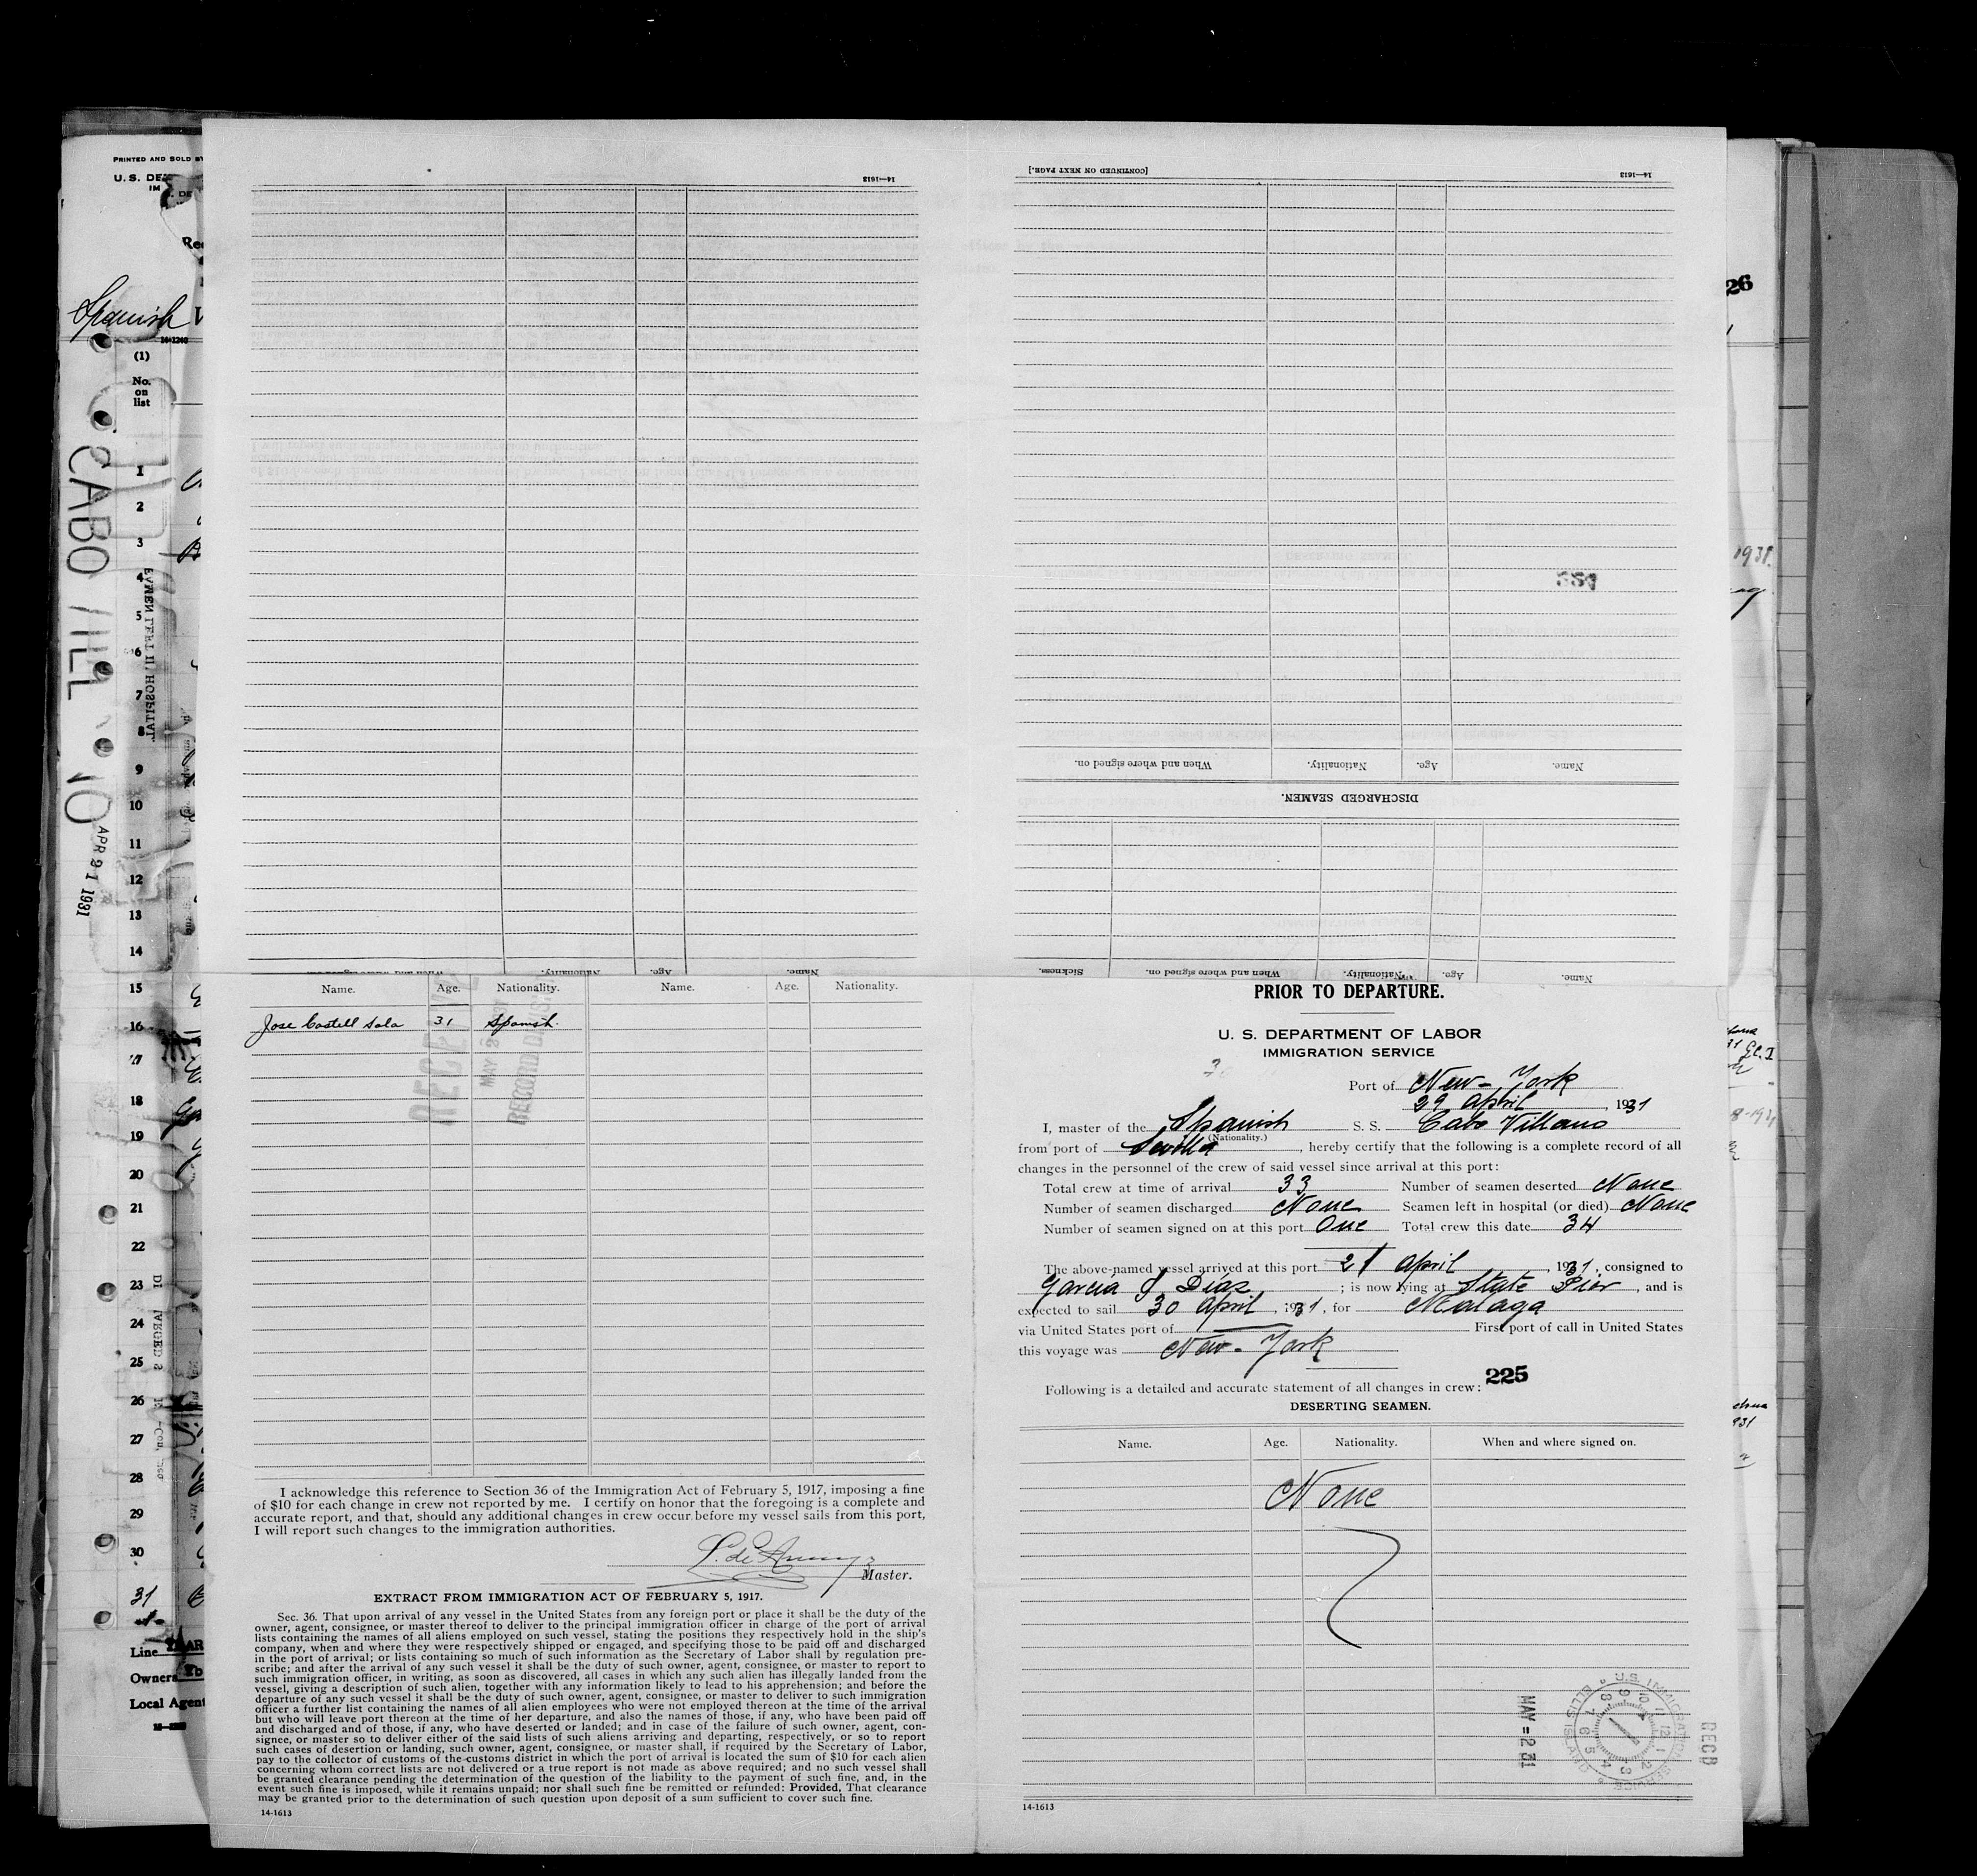 PRINTED AND SOLD BY
U. S. DE
IM
Spanish
(1)
No.
on
list
1
2
3
4
5
6
7
8
9
10
11
12
13
14
15
16
17
18
19
20
21
22
23
24
25
26
27
28
29
30
31
Line
Owners
Local Agent
CABO
APR 21 1931
14—1613
[CONTINUED ON NEXT PAGE.]
14—1613
26
1931.
When and where signed on. Nationality. Age. Name.
DISCHARGED SEAMEN.
Sickness. When and where signed on. Nationality. Age. Name.
Name. Age. Nationality. Name. Age. Nationality.
Jose Castell Sala 31 Spanish.
RECORD
I acknowledge this reference to Section 36 of the Immigration Act of February 5, 1917, imposing a fine
of $10 for each change in crew not reported by me. I certify on honor that the foregoing is a complete and
accurate report, and that, should any additional changes in crew occur before my vessel sails from this port,
I will report such changes to the immigration authorities.
Master.
EXTRACT FROM IMMIGRATION ACT OF FEBRUARY 5, 1917.
Sec. 36. That upon arrival of any vessel in the United States from any foreign port or place it shall be the duty of the
owner, agent, consignee, or master thereof to deliver to the principal immigration officer in charge of the port of arrival
lists containing the names of all aliens employed on such vessel, stating the positions they respectively hold in the ship's
company, when and where they were respectively shipped or engaged, and specifying those to be paid off and discharged
in the port of arrival; or lists containing so much of such information as the Secretary of Labor shall by regulation pre-
scribe; and after the arrival of any such vessel it shall be the duty of such owner, agent, consignee, or master to report to
such immigration officer, in writing, as soon as discovered, all cases in which any such alien has illegally landed from the
vessel, giving a description of such alien, together with any information likely to lead to his apprehension; and before the
departure of any such vessel it shall be the duty of such owner, agent, consignee, or master to deliver to such immigration
officer a further list containing the names of all alien employees who were not employed thereon at the time of the arrival
but who will leave port thereon at the time of her departure, and also the names of those, if any, who have been paid off
and discharged and of those, if any, who have deserted or landed; and in case of the failure of such owner, agent, con-
signee, or master so to deliver either of the said lists of such aliens arriving and departing, respectively, or so to report
such cases of desertion or landing, such owner, agent, consignee, or master shall, if required by the Secretary of Labor,
pay to the collector of customs of the customs district in which the port of arrival is located the sum of $10 for each alien
concerning whom correct lists are not delivered or a true report is not made as above required; and no such vessel shall
be granted clearance pending the determination of the question of the liability to the payment of such fine, and, in the
event such fine is imposed, while it remains unpaid; nor shall such fine be remitted or refunded: Provided, That clearance
may be granted prior to the determination of such question upon deposit of a sum sufficient to cover such fine.
14-1613
PRIOR TO DEPARTURE.
U. S. DEPARTMENT OF LABOR
IMMIGRATION SERVICE
Port of New-York
29 April, 1931
I, master of the Spanish S. S. Cabo Villano
(Nationality.)
from port of Sevilla, hereby certify that the following is a complete record of all
changes in the personnel of the crew of said vessel since arrival at this port:
Total crew at time of arrival 33 Number of seamen deserted None
Number of seamen discharged None Seamen left in hospital (or died) None
Number of seamen signed on at this port One Total crew this date 34
The above-named vessel arrived at this port 21 April, 1931, consigned to
Garcia & Diaz; is now lying at State Pier, and is
expected to sail 30 April, 1931, for Malaga
via United States port of First port of call in United States
this voyage was New-York
225
Following is a detailed and accurate statement of all changes in crew:
DESERTING SEAMEN.
Name. Age. Nationality. When and where signed on.
None
MAY = 2 31
U.S. IMMIGRATION SERVICE ELLIS ISLAND
RECD
14-1613